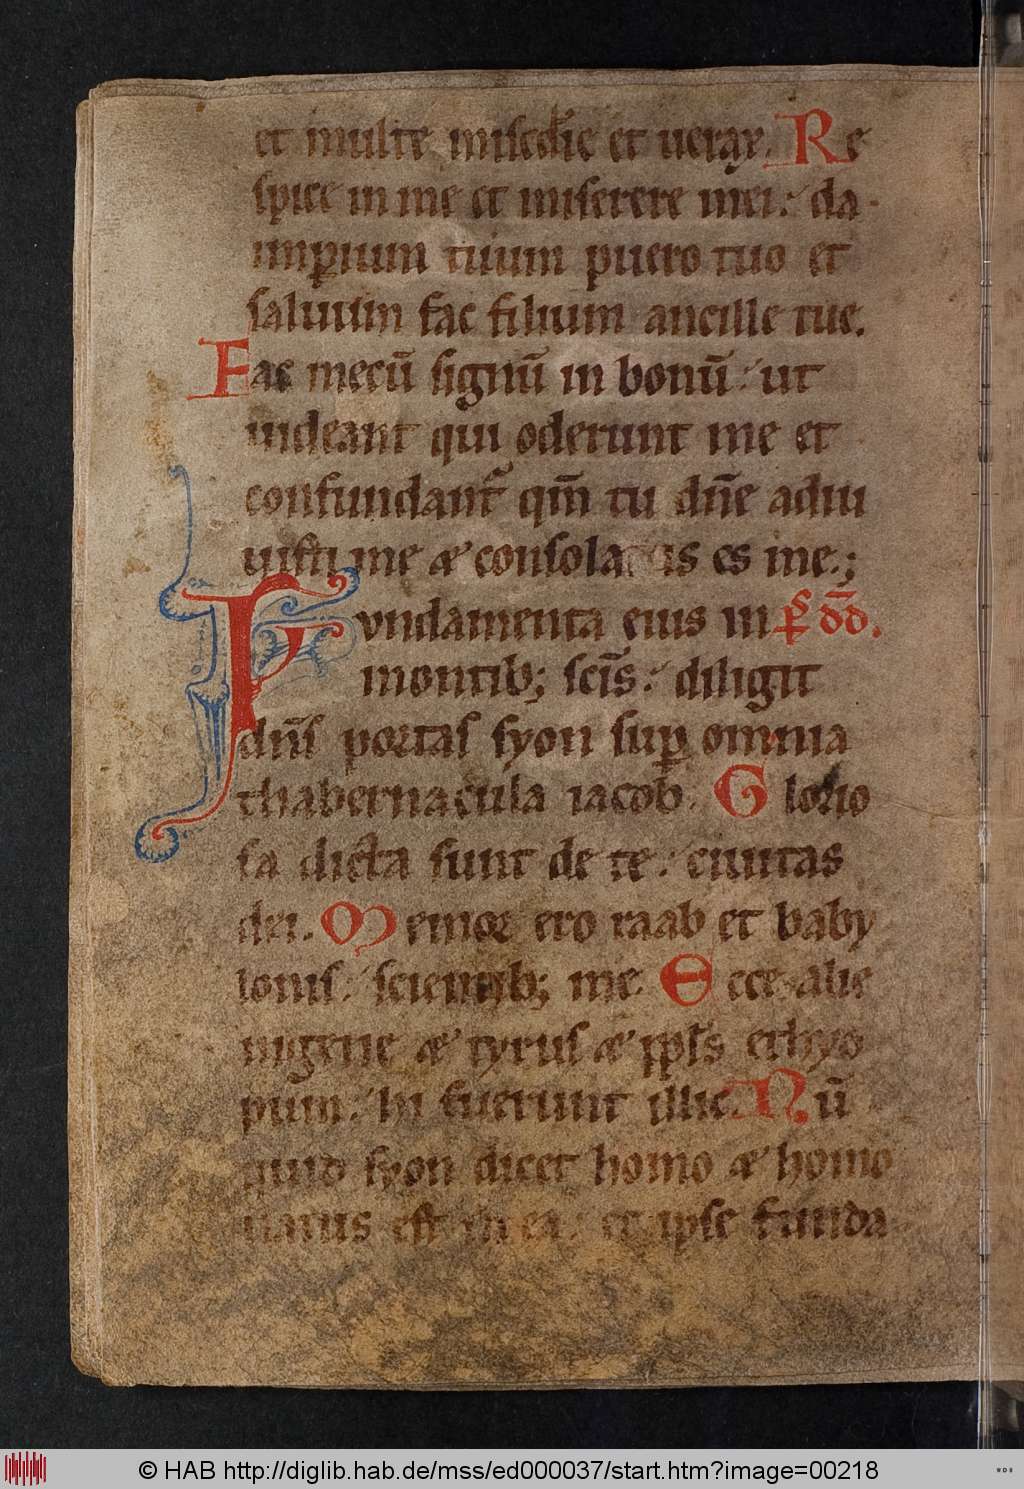 et multe misc̄die et uerax. Re
spice in me et miserere mei: da
imp̲ium tuum puero tuo et
saluum fac filium ancille tue.
Fac mecū signū in bonū: ut
uideant qui oderunt me et
confundant᷑ qm̄ tu dn̄e adiu
uisti me æ consolatus es me.;
Fundamenta eius in p̲s dd̄.
montib; scīs: diligit
dn̄s portas syon sup̲ omnia
thabernacula iacob. Glorio
sa dicta sunt de te: ciuitas
dei. Memor ero raab et baby
lonis: scientib; me. Ecce alie
nigene æ tyrus æ pp̲ls ethyo
pum: hi fuerunt illic. Nū
quid syon dicet homo æ homo
natus est in ea: et ipse funda
© HAB http://diglib.hab.de/mss/ed000037/start.htm?image=00218